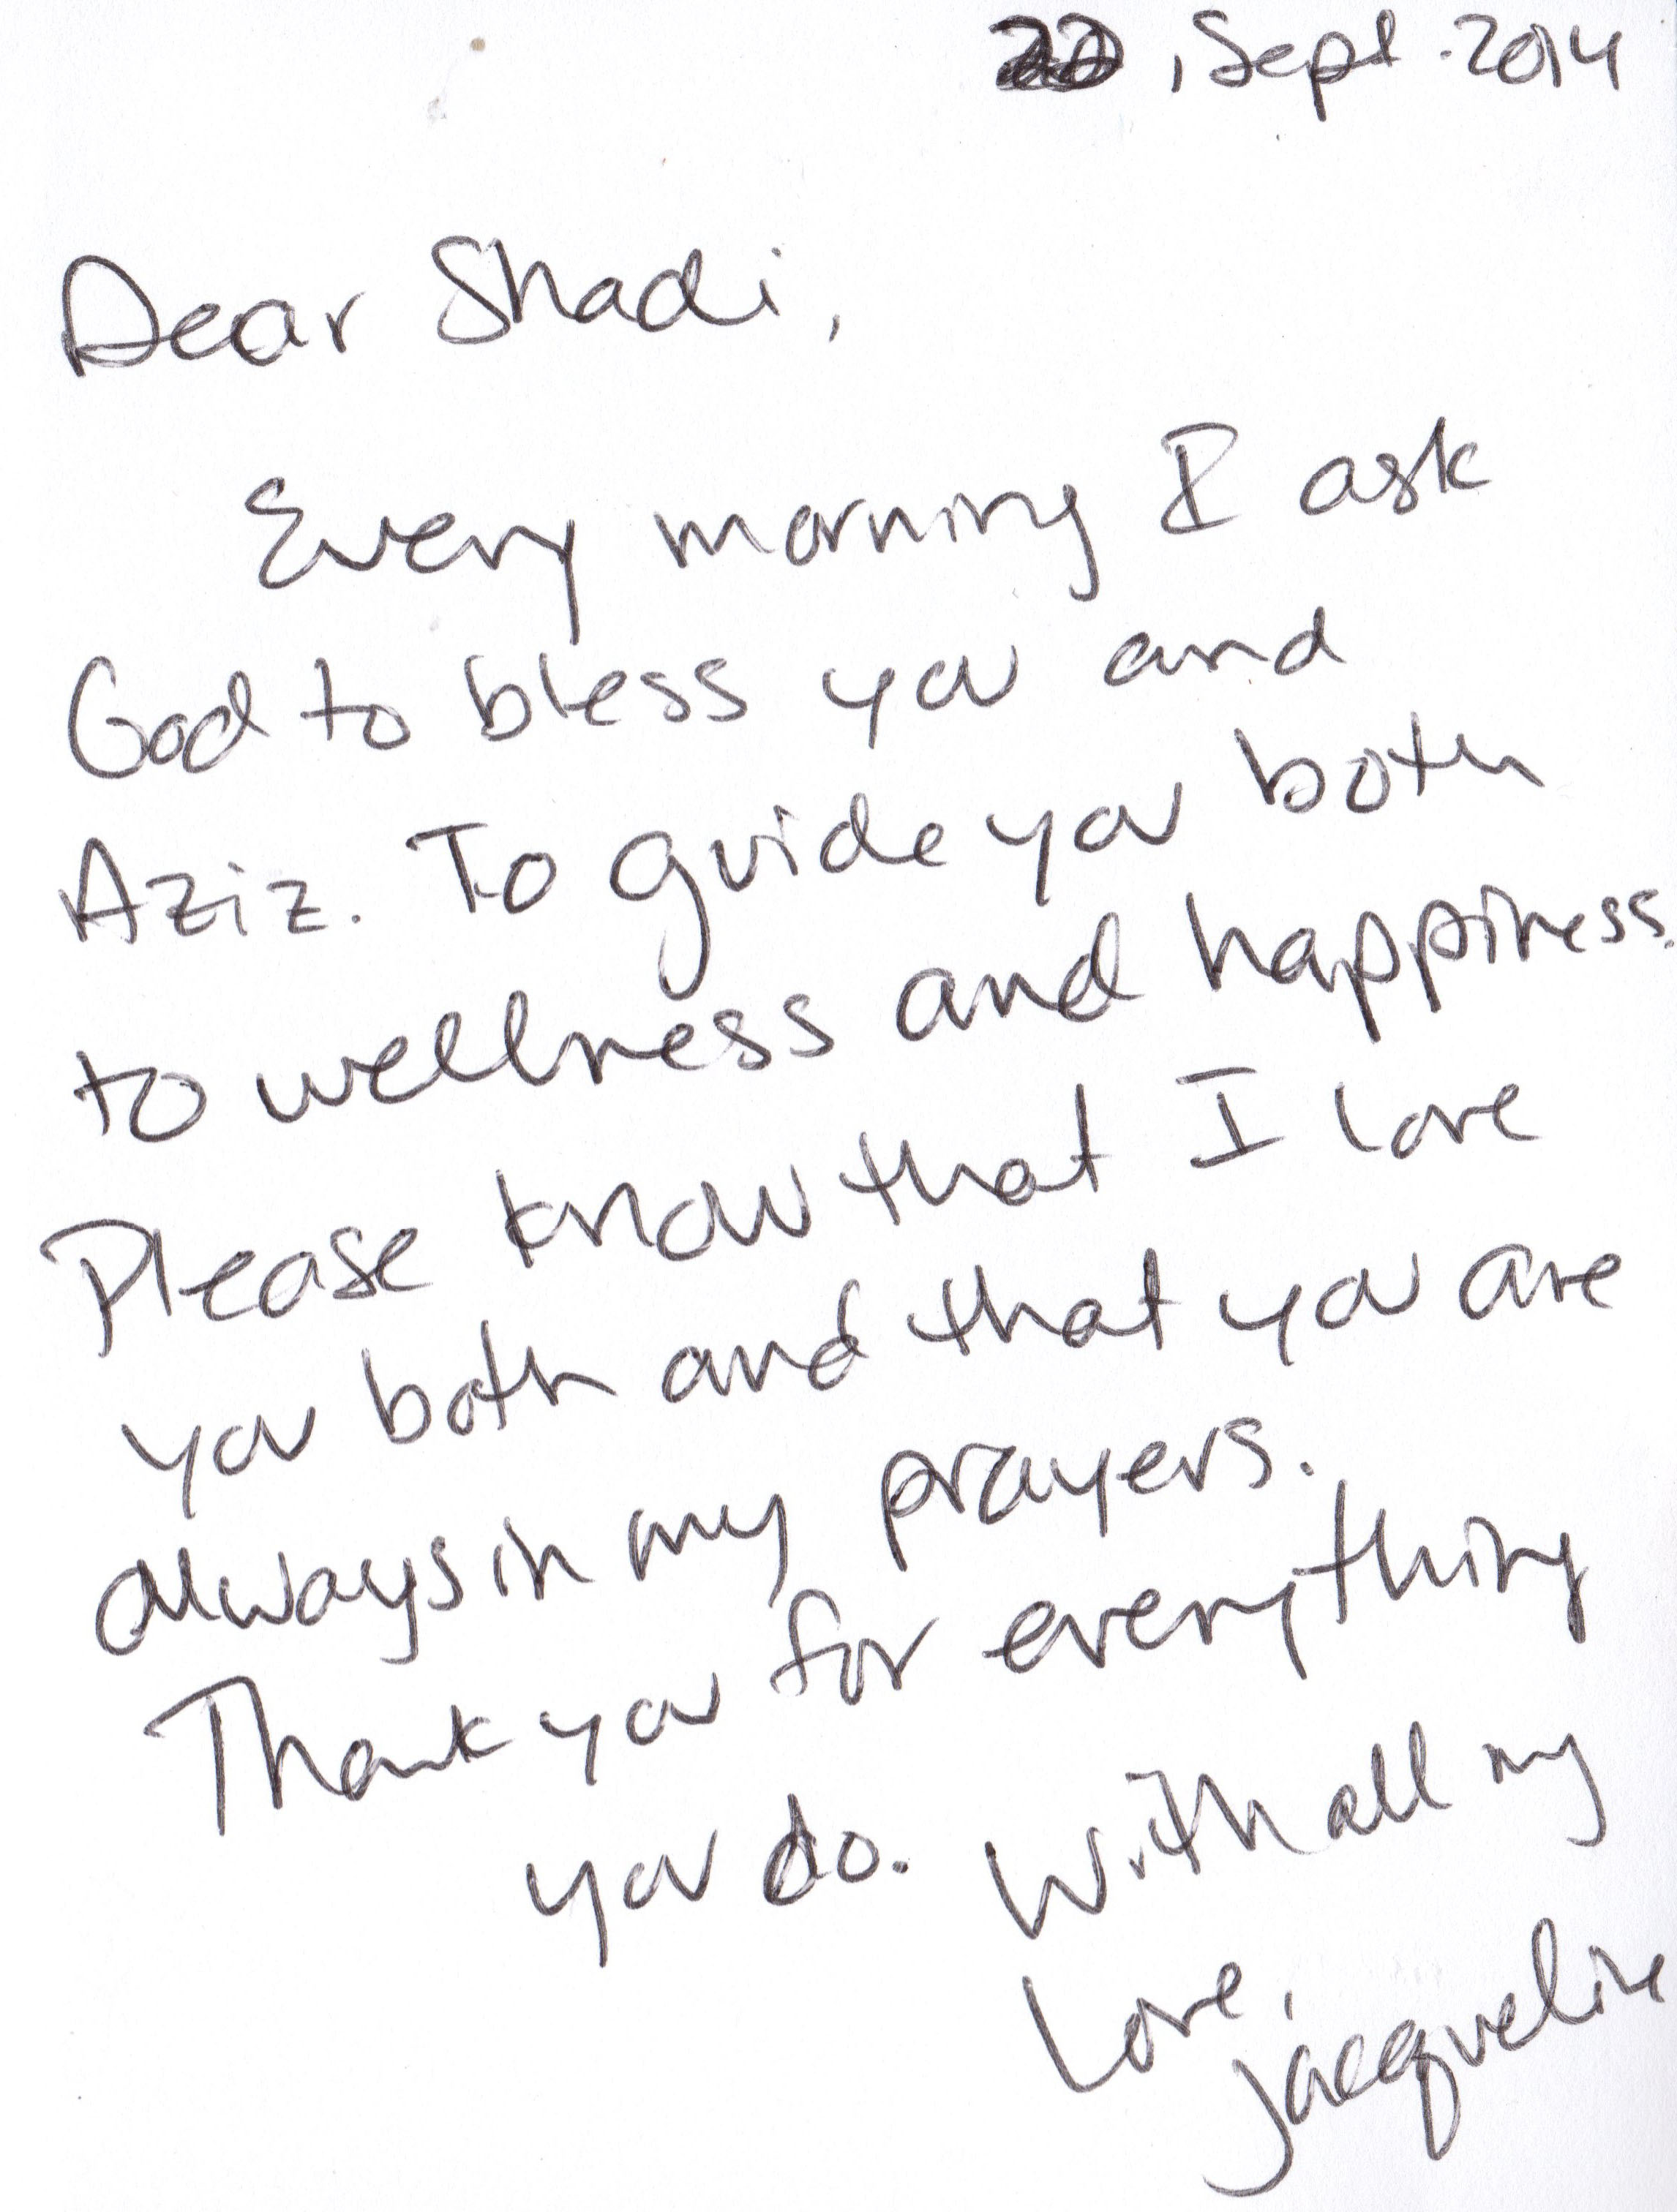 22, Sept. 2014
Dear Shadi,
Every morning I ask
God to bless you and
Aziz. To guide you both
to wellness and happiness.
Please know that I love
you both and that you are
always in my prayers.
Thank you for everything
you do. With all my
Love,
Jacqueline